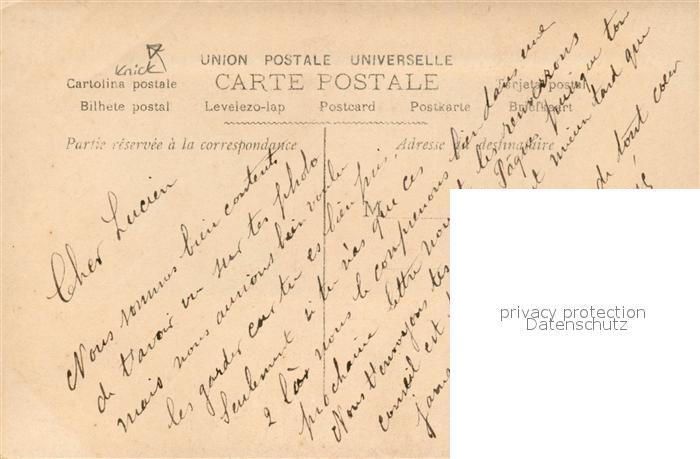 Knick
UNION POSTALE UNIVERSELLE
Cartolina postale CARTE POSTALE Tarjeta postal
Bilhete postal Levelezo-lap Postcard Postkarte Briefkaart
Partie réservée à la correspondance Adresse du destinataire
M
Cher Lucien
Nous sommes bien contents
de t'avoir vu sur tes photo
mais nous aurions bien voulu
les garder car tu es bien pris.
Seulement si tu n'as que ces
2 là nous le comprenons bien dans une
prochaine lettre nous les renverrons
Nous t'envoyons tes Pâques puisque ton
conseil est mieux tard que
jamais de tout cœur
privacy protection
Datenschutz